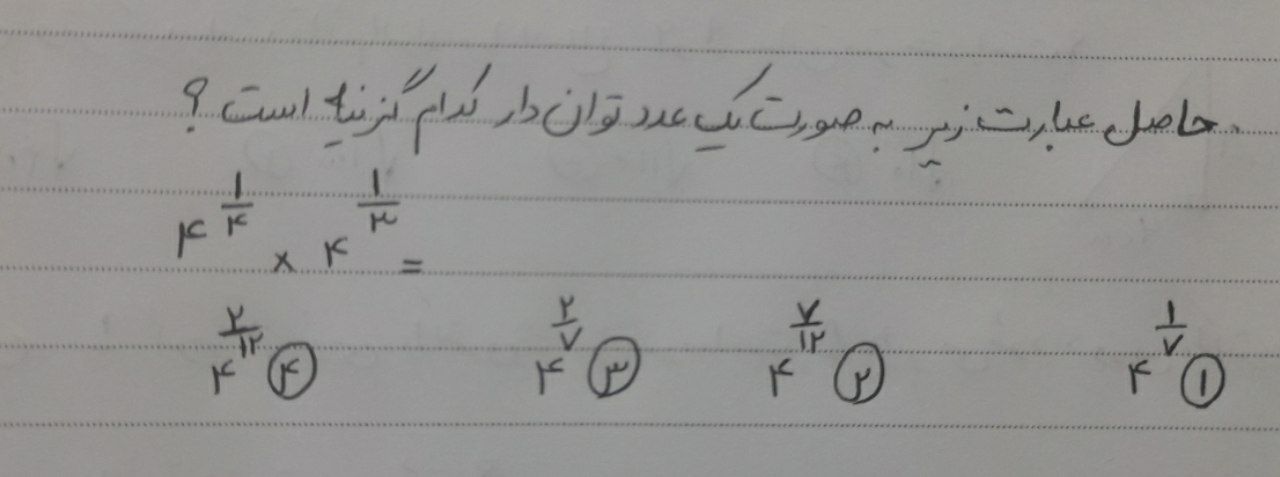 حاصل عبارت زیر به صورت یک عدد توان دار کدام گزینه است ؟
۴^(۱/۴) × ۴^(۱/۳) =
① ۴^(۱/۷) ② ۴^(۷/۱۲) ③ ۴^(۲/۷) ④ ۴^(۲/۱۲)